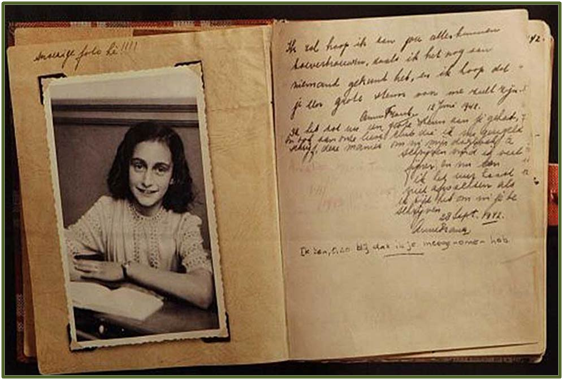 Snoezige foto hè!!!!
42.
Ik zal hoop ik aan jou alles kunnen
toevertrouwen, zoals ik het nog aan
niemand gekund heb, en ik hoop dat
je een grote steun van me zult zijn.
Anne Frank. 12 Juni 1942.
Ik heb tot nu een grote steun aan je gehad,
en ook aan onze lieve club die ik nu geregeld
schrijf, deze manier om in mijn dagboek te
schrijven vind ik veel
fijner en nu kan
ik het uur haast
niet afwachten als
ik tijd heb om in je te
schrijven.
28 Sept. 1942.
Anne Frank.
Ik ben, o, zo blij dat ik je meegenomen heb